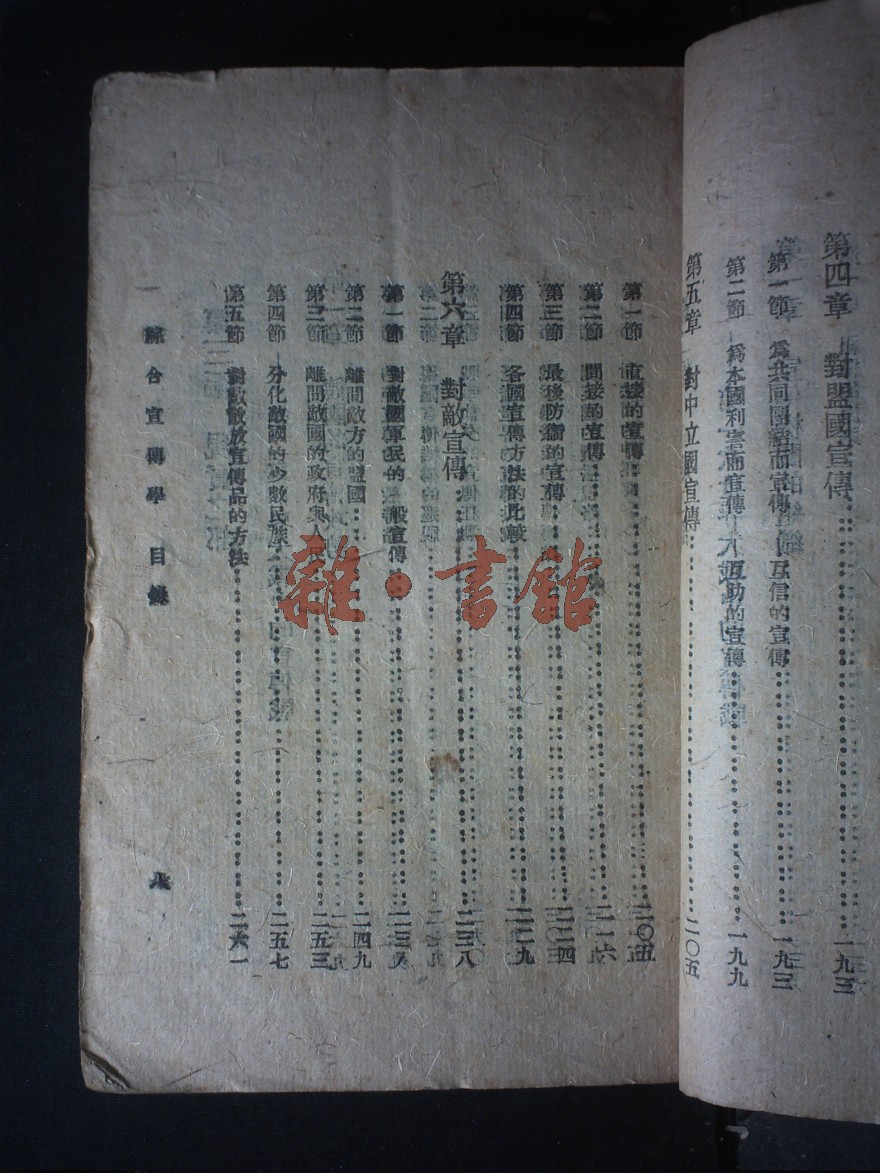 第四章 對盟國宣傳……一九三
第一節 為共同團結而宣傳 互信的宣傳……一九三
第二節 為本國利害而宣傳 互助的宣傳……一九九
第五章 對中立國宣傳……二〇五
第一節 直接的宣傳……二〇五
第二節 間接的宣傳……二一六
第三節 最後防衛的宣傳……二二四
第四節 各國宣傳方法的比較……二二九
第六章 對敵宣傳……二三八
第一節 對敵國軍民的一般宣傳……二三八
第二節 離間敵方的盟國……二四九
第三節 離間敵國的政府與人民……二五三
第四節 分化敵國的少數民族……二五七
第五節 對敵散放宣傳品的方法……二六一
綜合宣傳學 目錄
八
雜·書館